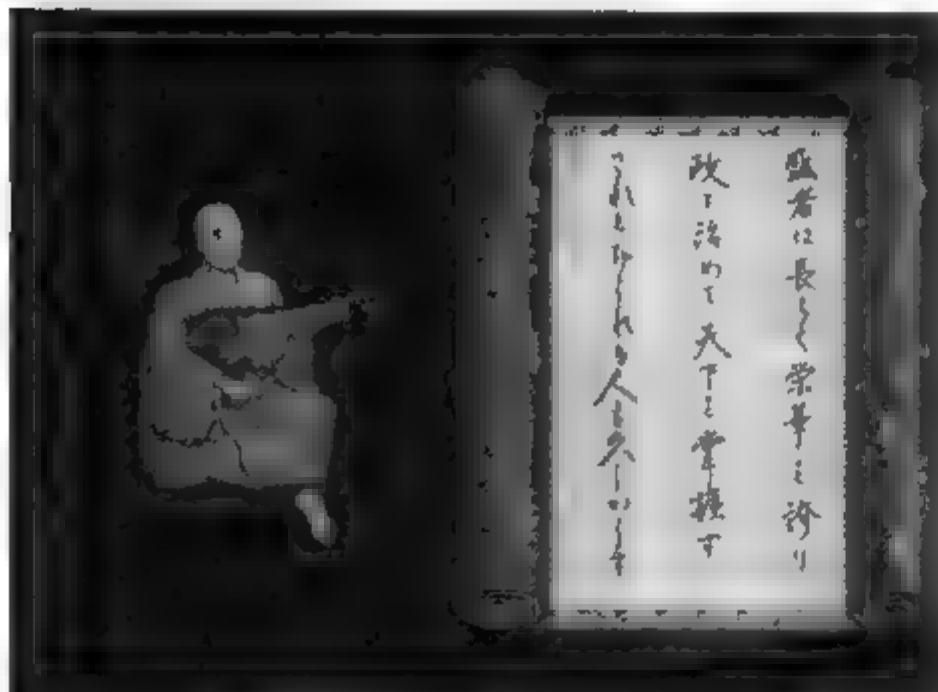 盛者は長らく栄華を誇り
政を治めて天下を掌握す
されどおごれる人も久しからず